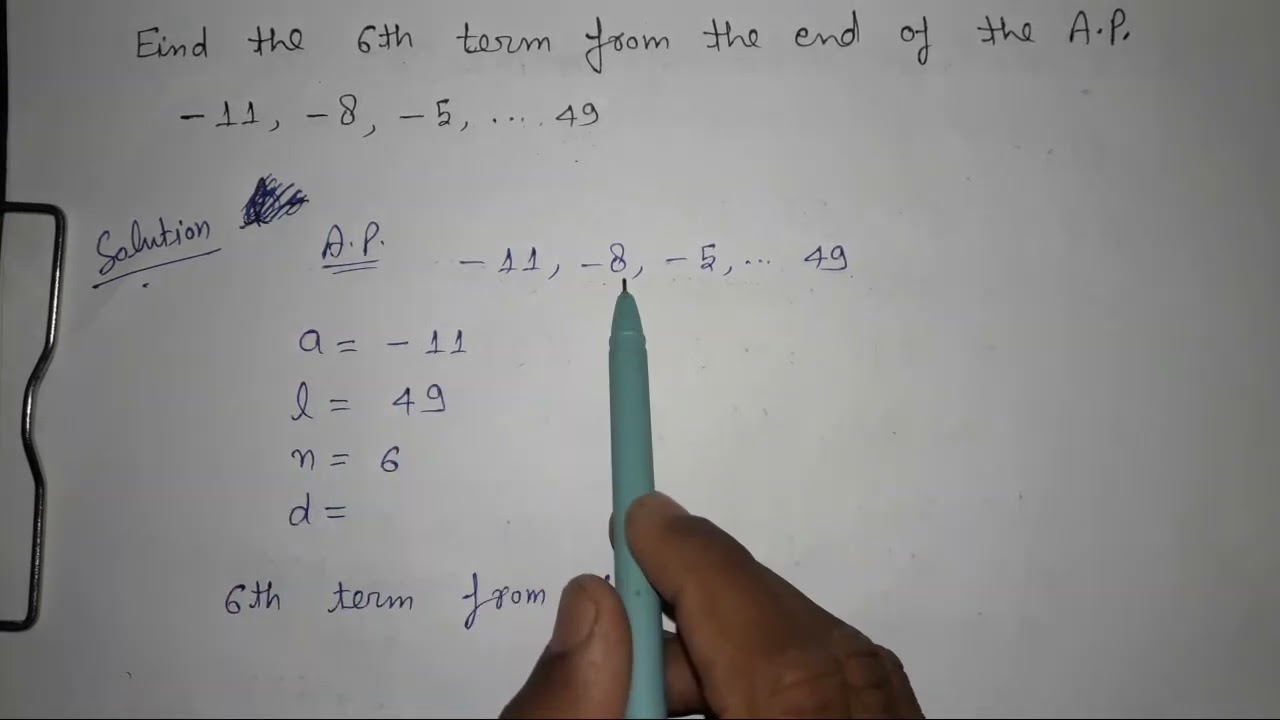 Eind the 6th term from the end of the A.P.
-11, -8, -5, .... 49
Solution
A.P. -11, -8, -5, ... 49
a = -11
l = 49
n = 6
d =
6th term from